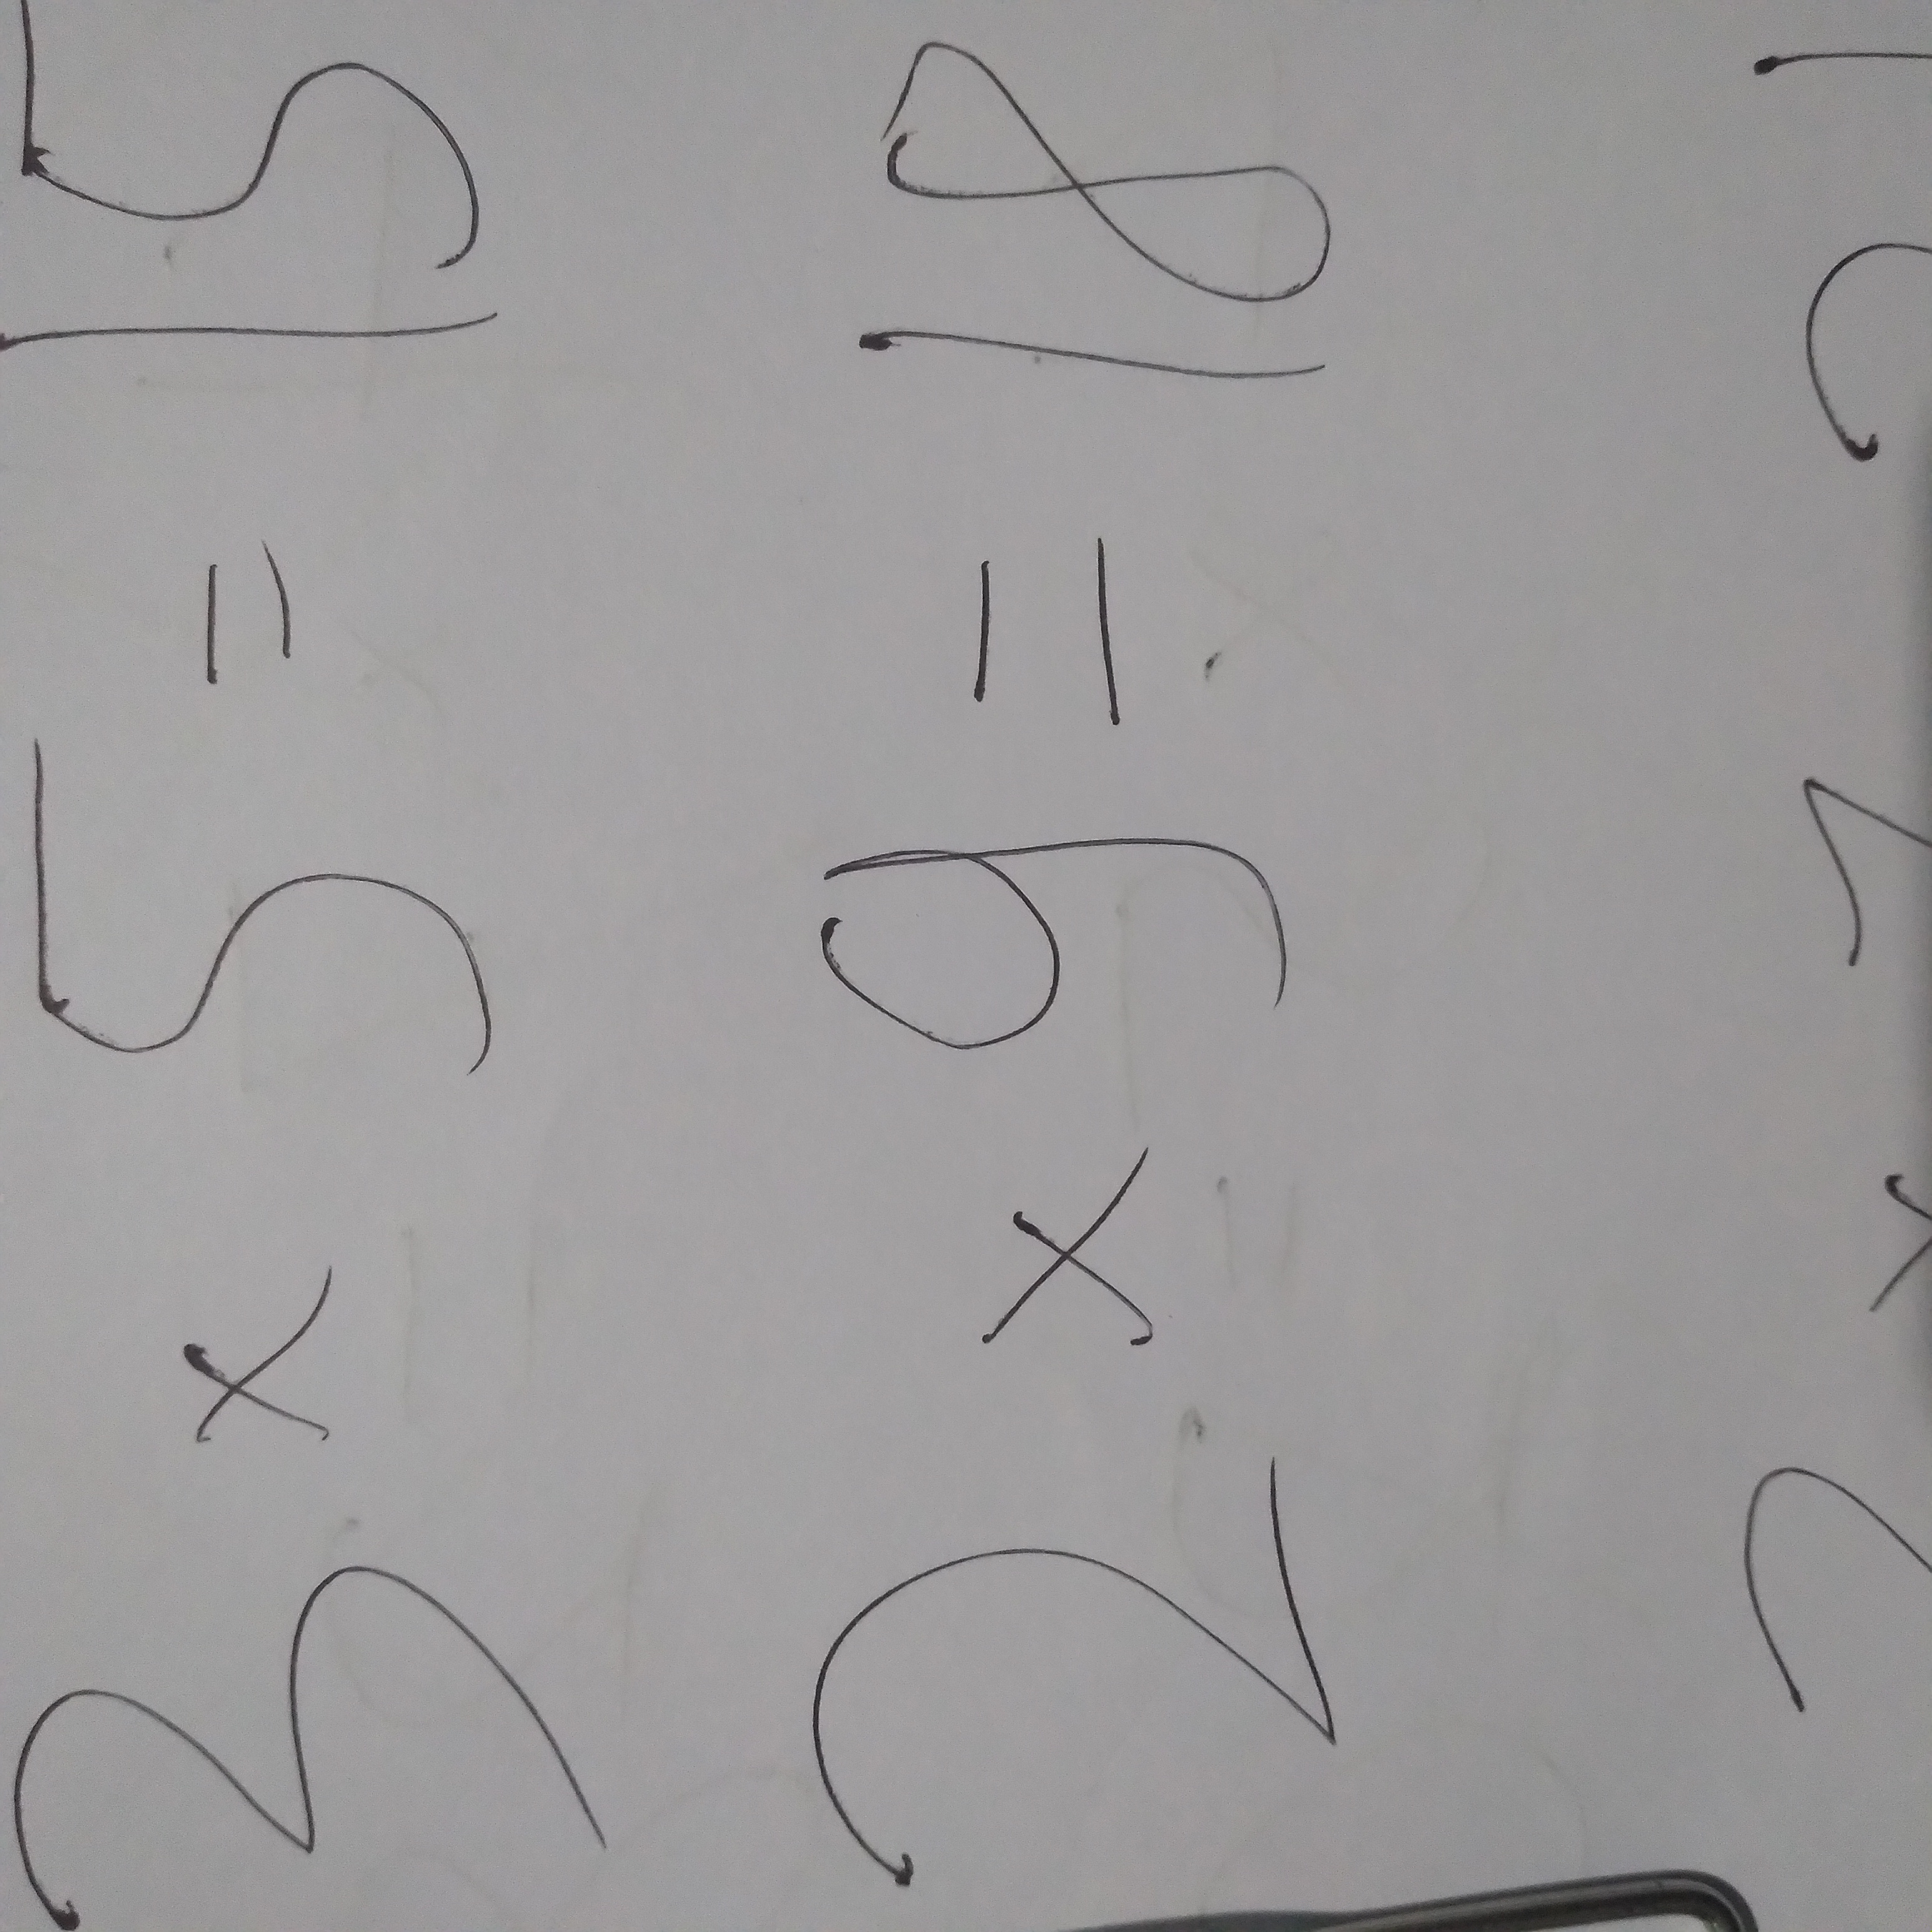 3 x 5 = 15
2 x 9 = 18